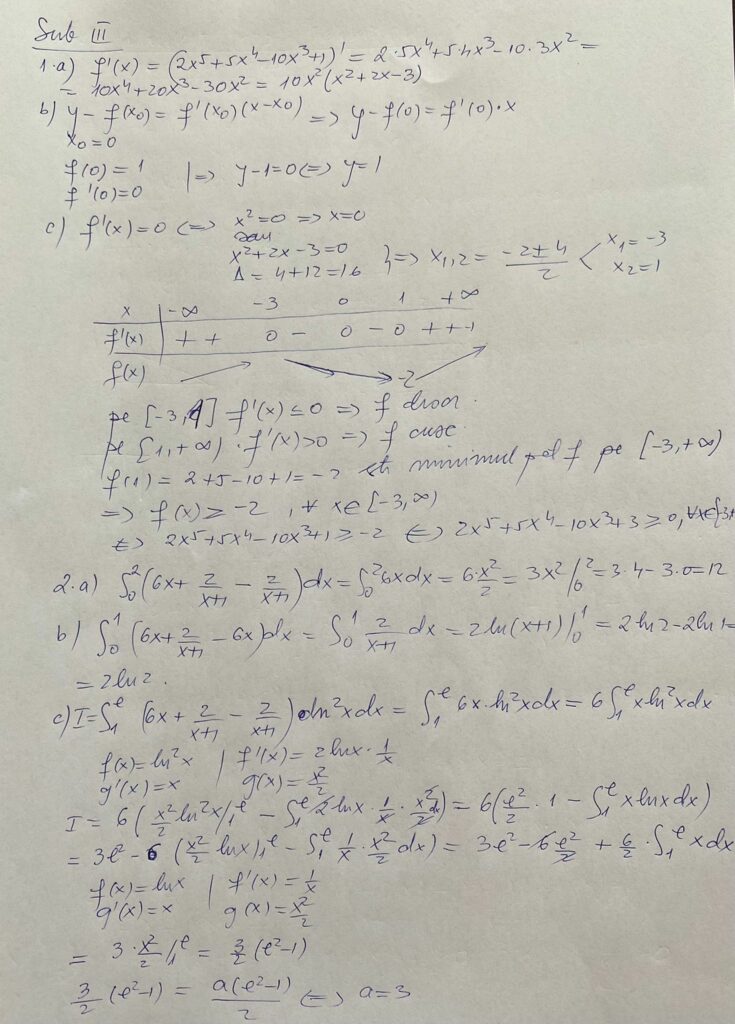 Sub III
1.a) f'(x) = (2x⁵+5x⁴-10x³+1)' = 2·5x⁴+5·4x³-10·3x² =
= 10x⁴+20x³-30x² = 10x²(x²+2x-3)
b) y-f(x₀) = f'(x₀)(x-x₀) => y-f(0) = f'(0)·x
x₀=0
f(0) = 1 |=> y-1=0 <=> y=1
f'(0)=0
c) f'(x)=0 <=> x²=0 => x=0
sau
x²+2x-3=0 }=> x₁,₂ = (-2±4)/2 < x₁=-3
Δ = 4+12=16 x₂=1
x | -∞ -3 0 1 +∞
f'(x) | + + 0 - 0 - 0 + + +
f(x) -2
pe [-3,1] f'(x) ≤ 0 => f
pe [1,+∞) f'(x)>0 => f
f(1) = 2+5-10+1 = -2 minimul f pe [-3,+∞)
=> f(x) ≥ -2, ∀ x∈[-3,∞)
<=> 2x⁵+5x⁴-10x³+1 ≥ -2 <=> 2x⁵+5x⁴-10x³+3 ≥ 0, ∀x∈[-3,
2.a) ∫₀²(6x+2/(x+1) - 2/(x+1))dx = ∫₀²6xdx = 6·x²/2 = 3x²/₀² = 3·4-3·0=12
b) ∫₀¹(6x+2/(x+1) - 6x)dx = ∫₀¹ 2/(x+1) dx = 2ln(x+1)|₀¹ = 2ln2-2ln1=
= 2ln2.
c) I=∫₁ᵉ (6x+2/(x+1) - 2/(x+1)) ln²xdx = ∫₁ᵉ 6x·ln²xdx = 6∫₁ᵉxln²xdx
f(x)=ln²x | f'(x) = 2lnx·1/x
g'(x)=x | g(x)=x²/2
I = 6(x²/2 ln²x/₁ᵉ - ∫₁ᵉ2lnx·1/x·x²/2 dx) = 6(e²/2·1 - ∫₁ᵉxlnxdx)
= 3e²-6(x²/2 lnx)₁ᵉ - ∫₁ᵉ 1/x·x²/2 dx) = 3e²-6e²/2 + 6/2·∫₁ᵉxdx
f(x)=lnx | f'(x)=1/x
g'(x)=x | g(x)=x²/2
= 3·x²/2/₁ᵉ = 3/2(e²-1)
3/2(e²-1) = a(e²-1)/2 <=> a=3